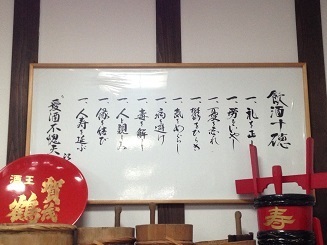 飲酒十徳
一、礼を正し
一、労をいとい
一、憂を忘れ
一、鬱をひらき
一、気をめぐらし
一、病を避け
一、毒を解し
一、人と親しみ
一、縁を結び
一、人寿を延ぶ
愛酒不愧天
酒王
賀茂鶴
寿